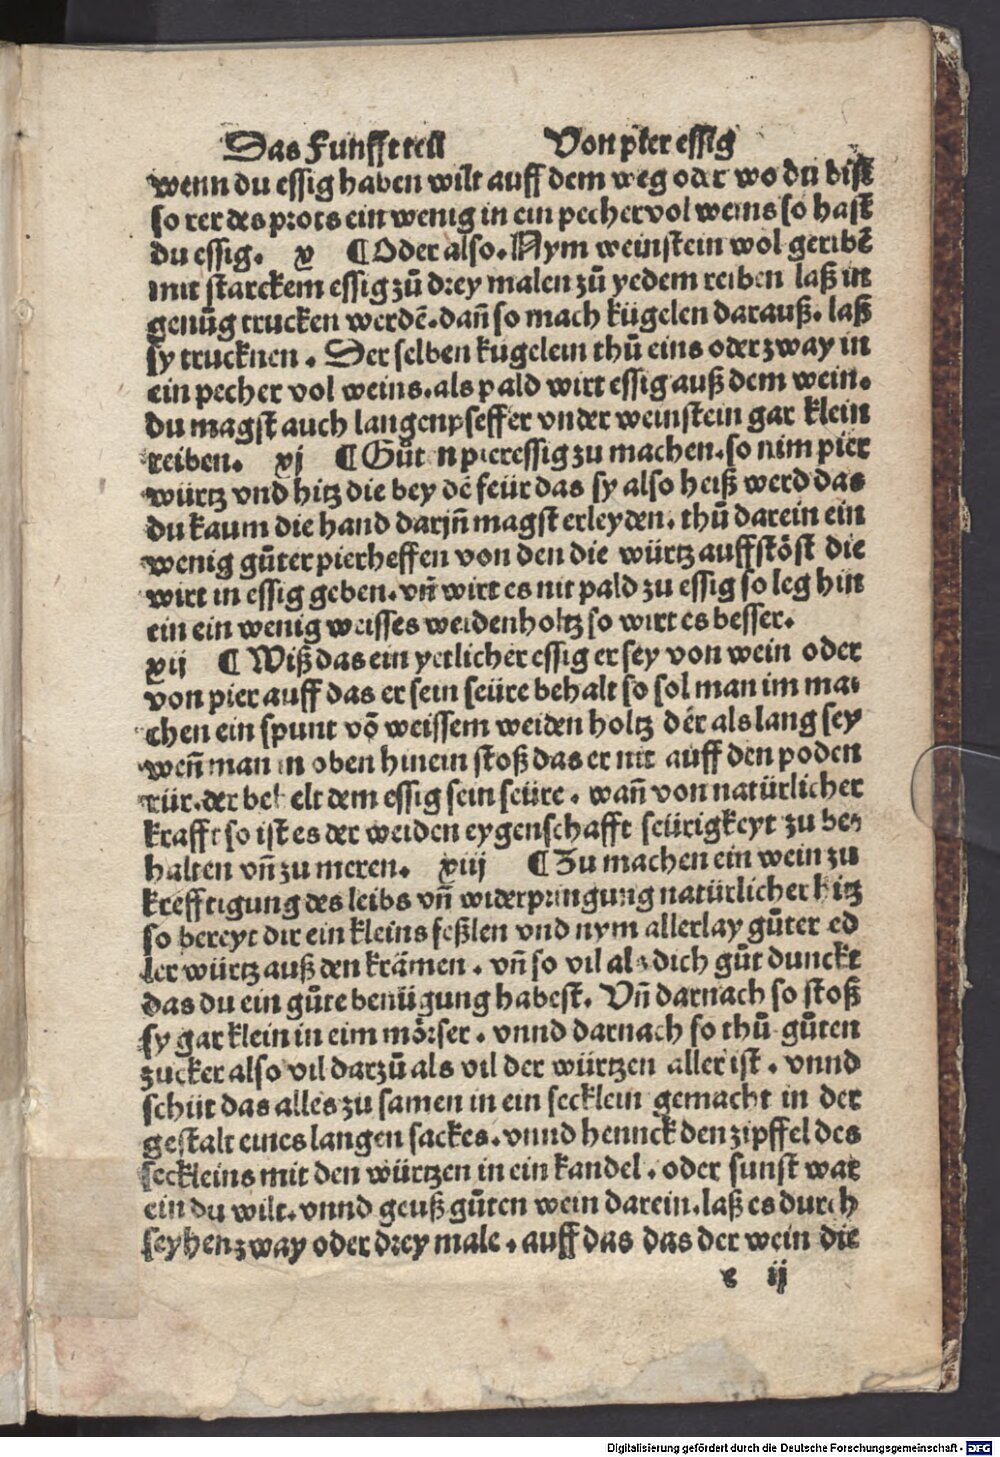 Das Funfft teil Von pier essig
wenn du essig haben wilt auff dem weg oder wo du bist
so rer des prots ein wenig in ein pecher vol weins so hast
du essig. x ¶ Oder also. Nym weinstein wol geribē
mit starckem essig zů drey malen zů yedem reiben laß in
genůg trucken werdē. dañ so mach kügelen darauß. laß
sy trucknen. Der selben kügelein thů eins oder zway in
ein pecher vol weins. als pald wirt essig auß dem wein.
du magst auch langen pfeffer vnder weinstein gar klein
reiben. xj ¶ Gůten pieressig zu machen. so nim pier
würtz vnd hitz die bey dē feür das sy also heiß werd das
du kaum die hand darjñ magst erleyden. thů darein ein
wenig gůter pierheffen von den die würtz auffstöst die
wirt in essig geben. vñ wirt es nit pald zu essig so leg hin
ein ein wenig weisses weidenholtz so wirt es besser.
xij ¶ Wiß das ein yetlicher essig er sey von wein oder
von pier auff das er sein seüre behalt so sol man im ma-
chen ein spunt vō weissem weiden holtz der als lang sey
weñ man in oben hinein stoß das er nit auff den poden
rür. der behelt dem essig sein seüre. wañ von natürlicher
krafft so ist es der weiden eygenschafft seürigkeyt zu be-
halten vñ zu meren. xiij ¶ Zu machen ein wein zu
krefftigung des leibs vñ widerpringung natürlicher hitz
so bereyt dir ein kleins feßlen vnd nym allerlay gůter ed
ler würtz auß den krämen. vñ so vil als dich gůt dunckt
das du ein gůte benügung habest. Vñ darnach so stoß
sy gar klein in eim mörser. vnnd darnach so thů gůten
zucker also vil darzů als vil der würtzen aller ist. vnnd
schüt das alles zu samen in ein secklein gemacht in der
gestalt eines langen sackes. vnnd henck den zipffel des
seckleins mit den würtzen in ein kandel. oder sunst war
ein du wilt. vnnd geuß gůten wein darein. laß es durch
seyhen zway oder drey male. auff das das der wein die
e ij
Digitalisierung gefördert durch die Deutsche Forschungsgemeinschaft - DFG